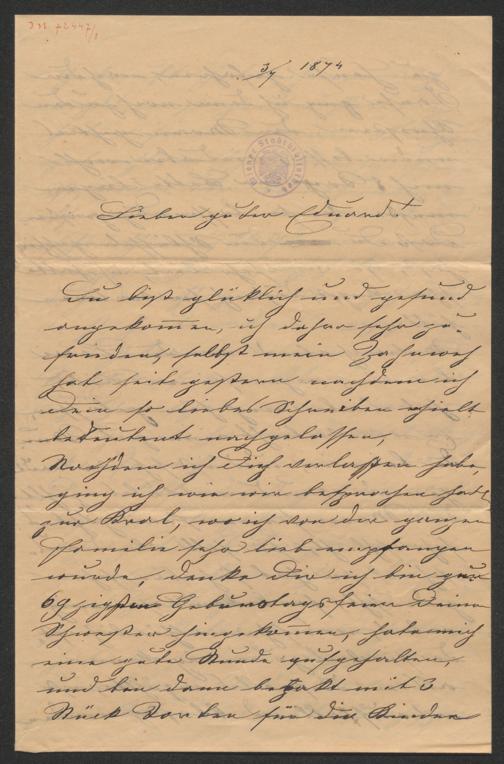 IN 72447/1
3/7 1874
Wiener Stadtbibliothek
Lieber guter Eduard!
Du bist glüklich und gesund
angekommen, ich daher sehr zu-
frieden, selbst mein Zahnweh
hat seit gestern nachdem ich
Dein so liebes Schreiben erhielt
bedeutent nachgelassen,
Nachdem ich Dich verlassen habe,
ging ich wie wir besprochen hat
zur Kral, wo ich von der ganzen
Familie sehr lieb empfangen
wurde, denke Dir ich bin zur
69 zigsten Geburtstagsfeier Deiner
Schwester hingekommen, habe mich
eine gute Stunde aufgehalten,
und bin dann bepakt mit 3
Stück Torten für die Kinder